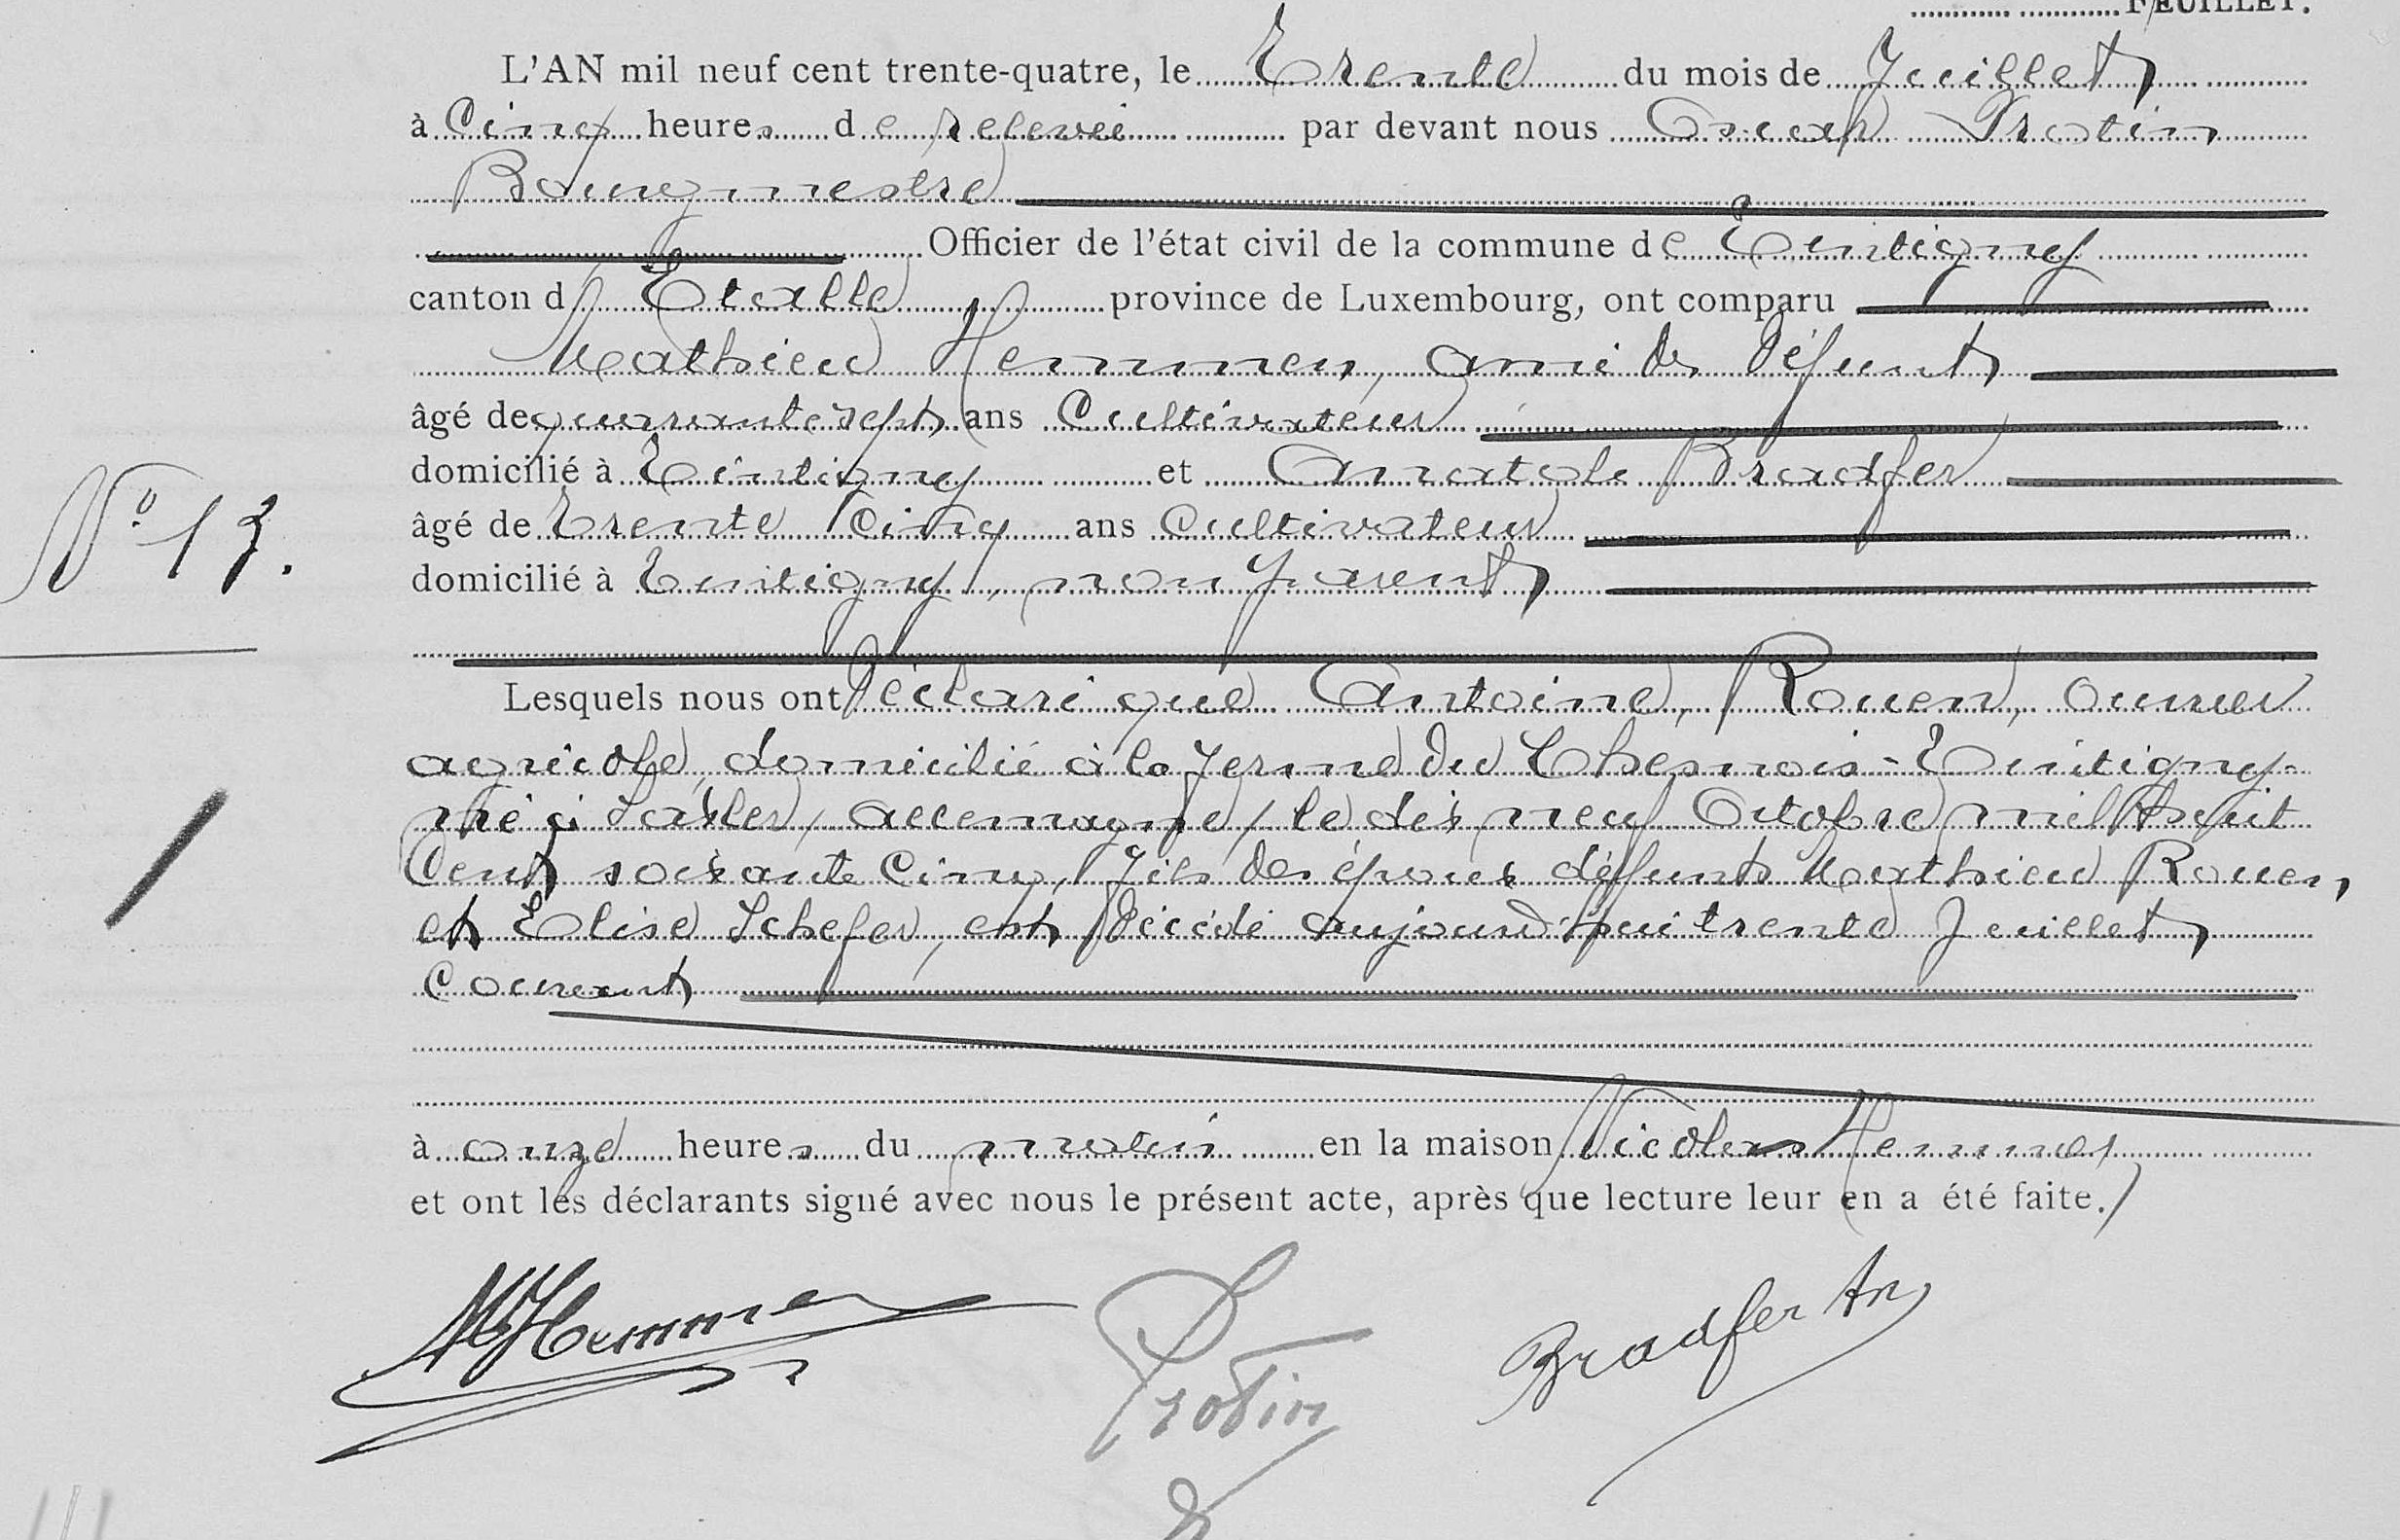 FEUILLET.
L'AN mil neuf cent trente-quatre, le Trente du mois de Juillet
à Cinq heures de relevée par devant nous Oscar Protin
Bourgmestre
Officier de l'état civil de la commune de Tintigny
canton d'Etalle province de Luxembourg, ont comparu
Mathieu Hemmen, ami du défunt
âgé de quarante sept ans Cultivateur
domicilié à Tintigny et Anatole Bradfer
âgé de trente cinq ans Cultivateur
domicilié à Tintigny, non parent
N° 13.
Lesquels nous ont déclaré que Antoine, Rouen, ouvrier
agricole, domicilié à la ferme du Chesnois-Tintigny-
né à allemagne / le dix neuf Octobre mil huit
Cent soixante Cinq, fils des époux défunts Mathieu Rouen,
et Elise Schefer, est décédé aujourd'hui trente Juillet
Courant
à onze heures du matin en la maison Nicolas Hemmer
et ont les déclarants signé avec nous le présent acte, après que lecture leur en a été faite.
M Hemmer Protin Bradfer An